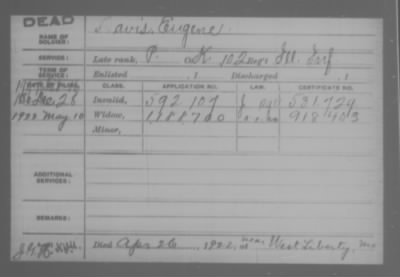 DEAD
Davis, Eugene.
NAME OF SOLDIER:
SERVICE: Late rank, P. Co K, 102 Ill. Inf
TERM OF SERVICE: Enlisted , 1 Discharged , 1
DATE OF FILING. CLASS. APPLICATION NO. LAW. CERTIFICATE NO.
Dec 28 Invalid, 592 107 531 729
1922 May 10 Widow, 1188 700 918 403
Minor,
ADDITIONAL SERVICES:
REMARKS:
Died Apr 26, 1922, at near West Liberty, Mo